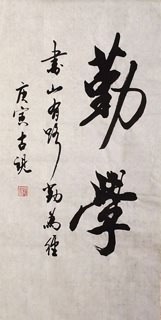 勤學
書山有路勤為徑
庚寅古銳